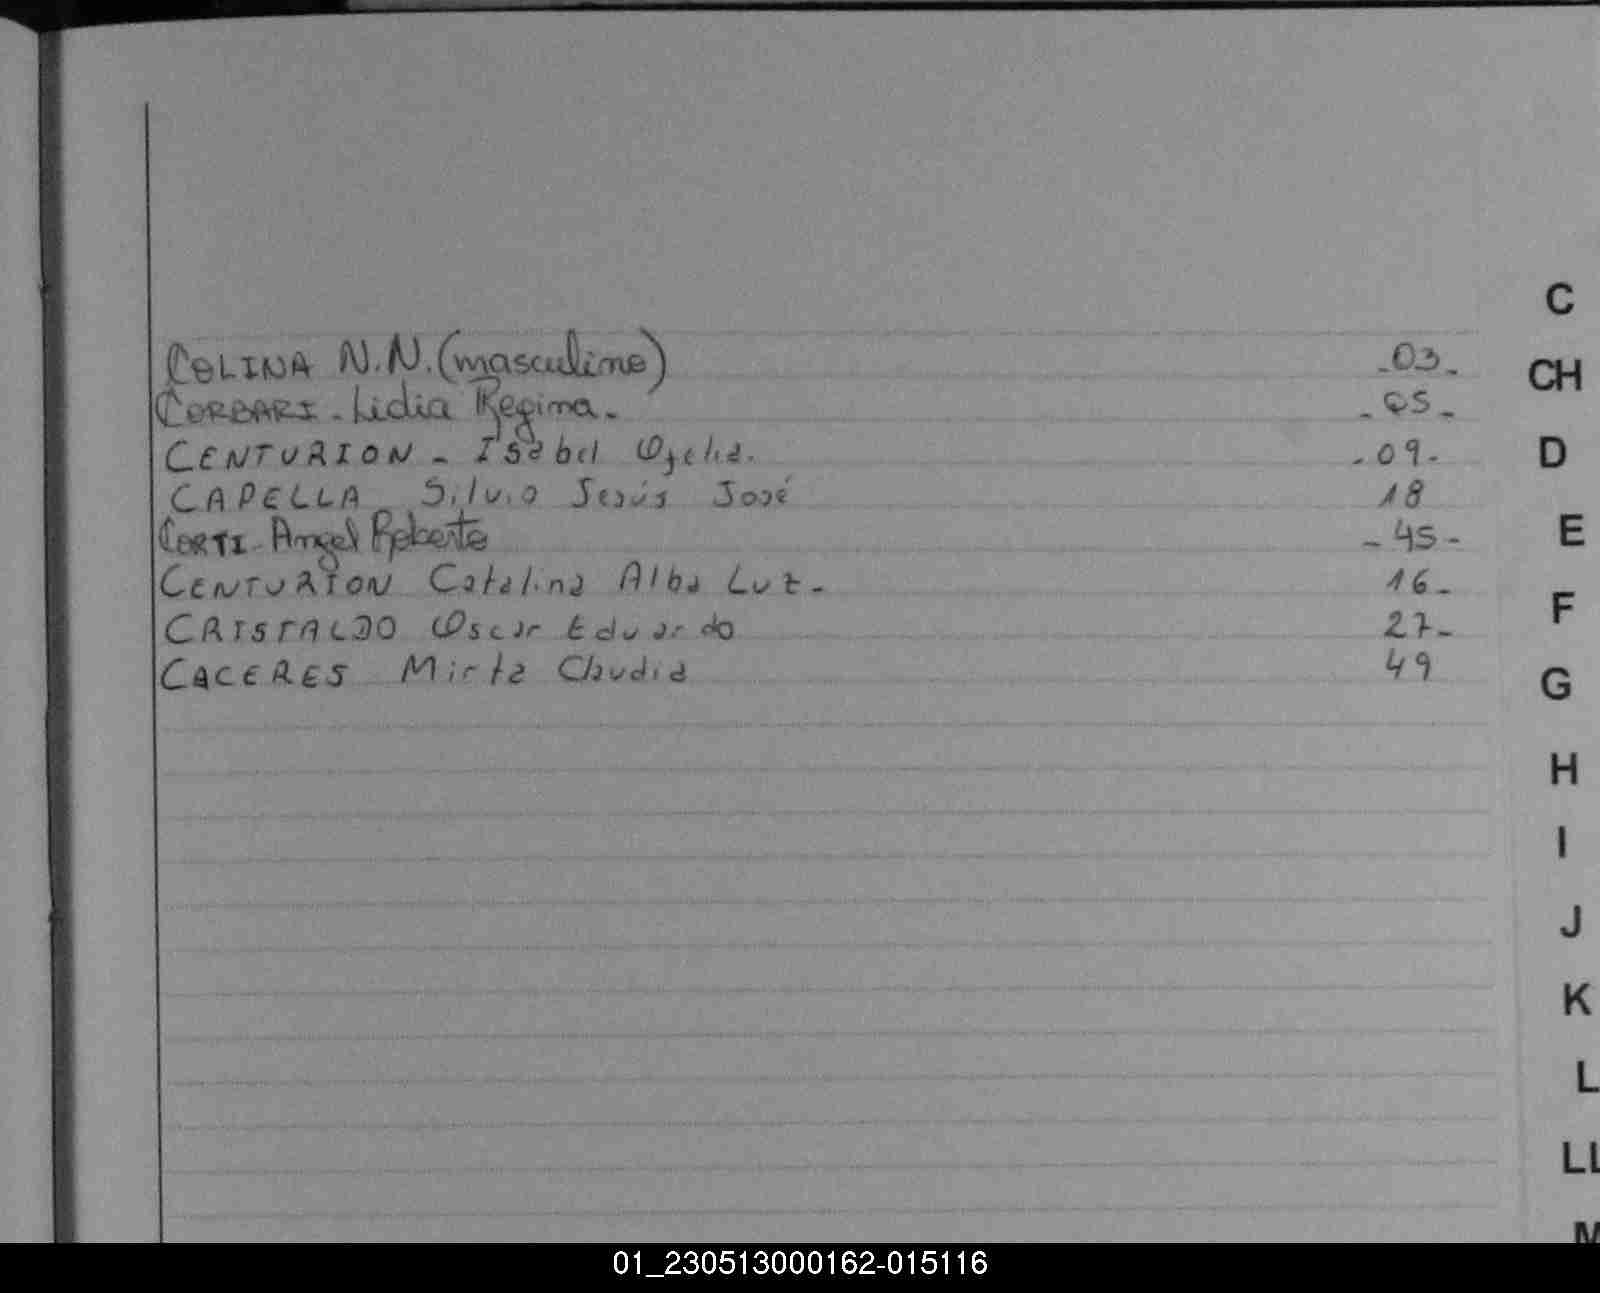 COLINA N.N. (masculino) -03-
CORBARI - Lidia Regina. - 05 -
CENTURION - Isabel Ofelia. - 09 -
CAPELLA Silvio Jesús José 18
CORTI - Angel Roberto - 45 -
CENTURION Catalina Alba Luz - 16 -
CRISTALDO Oscar Eduardo 27 -
CACERES Mirta Claudia 49
C
CH
D
E
F
G
H
I
J
K
L
LL
M
01_230513000162-015116